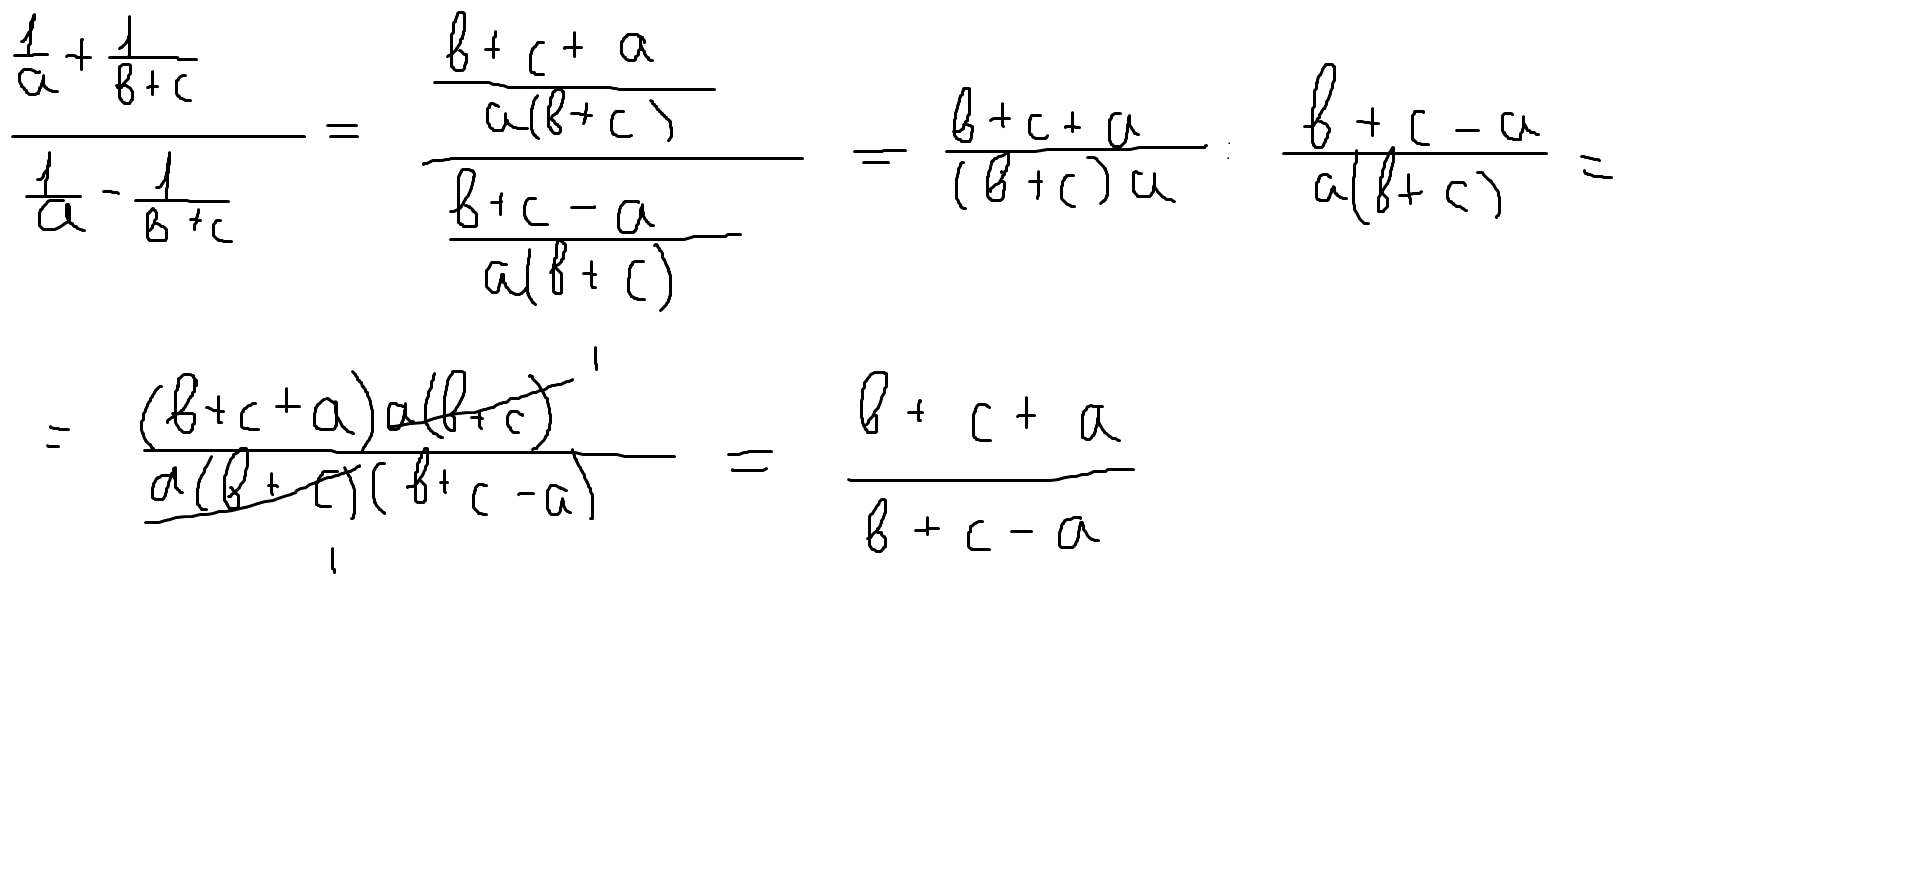 \frac{\frac{1}{a} + \frac{1}{в+c}}{\frac{1}{a} - \frac{1}{в+c}} = \frac{\frac{в+c+a}{a(в+c)}}{\frac{в+c-a}{a(в+c)}} = \frac{в+c+a}{(в+c)a} : \frac{в+c-a}{a(в+c)} =
= \frac{(в+c+a)\cancel{a(в+c)}^{1}}{\cancel{a(в+c)}_{1}(в+c-a)} = \frac{в+c+a}{в+c-a}